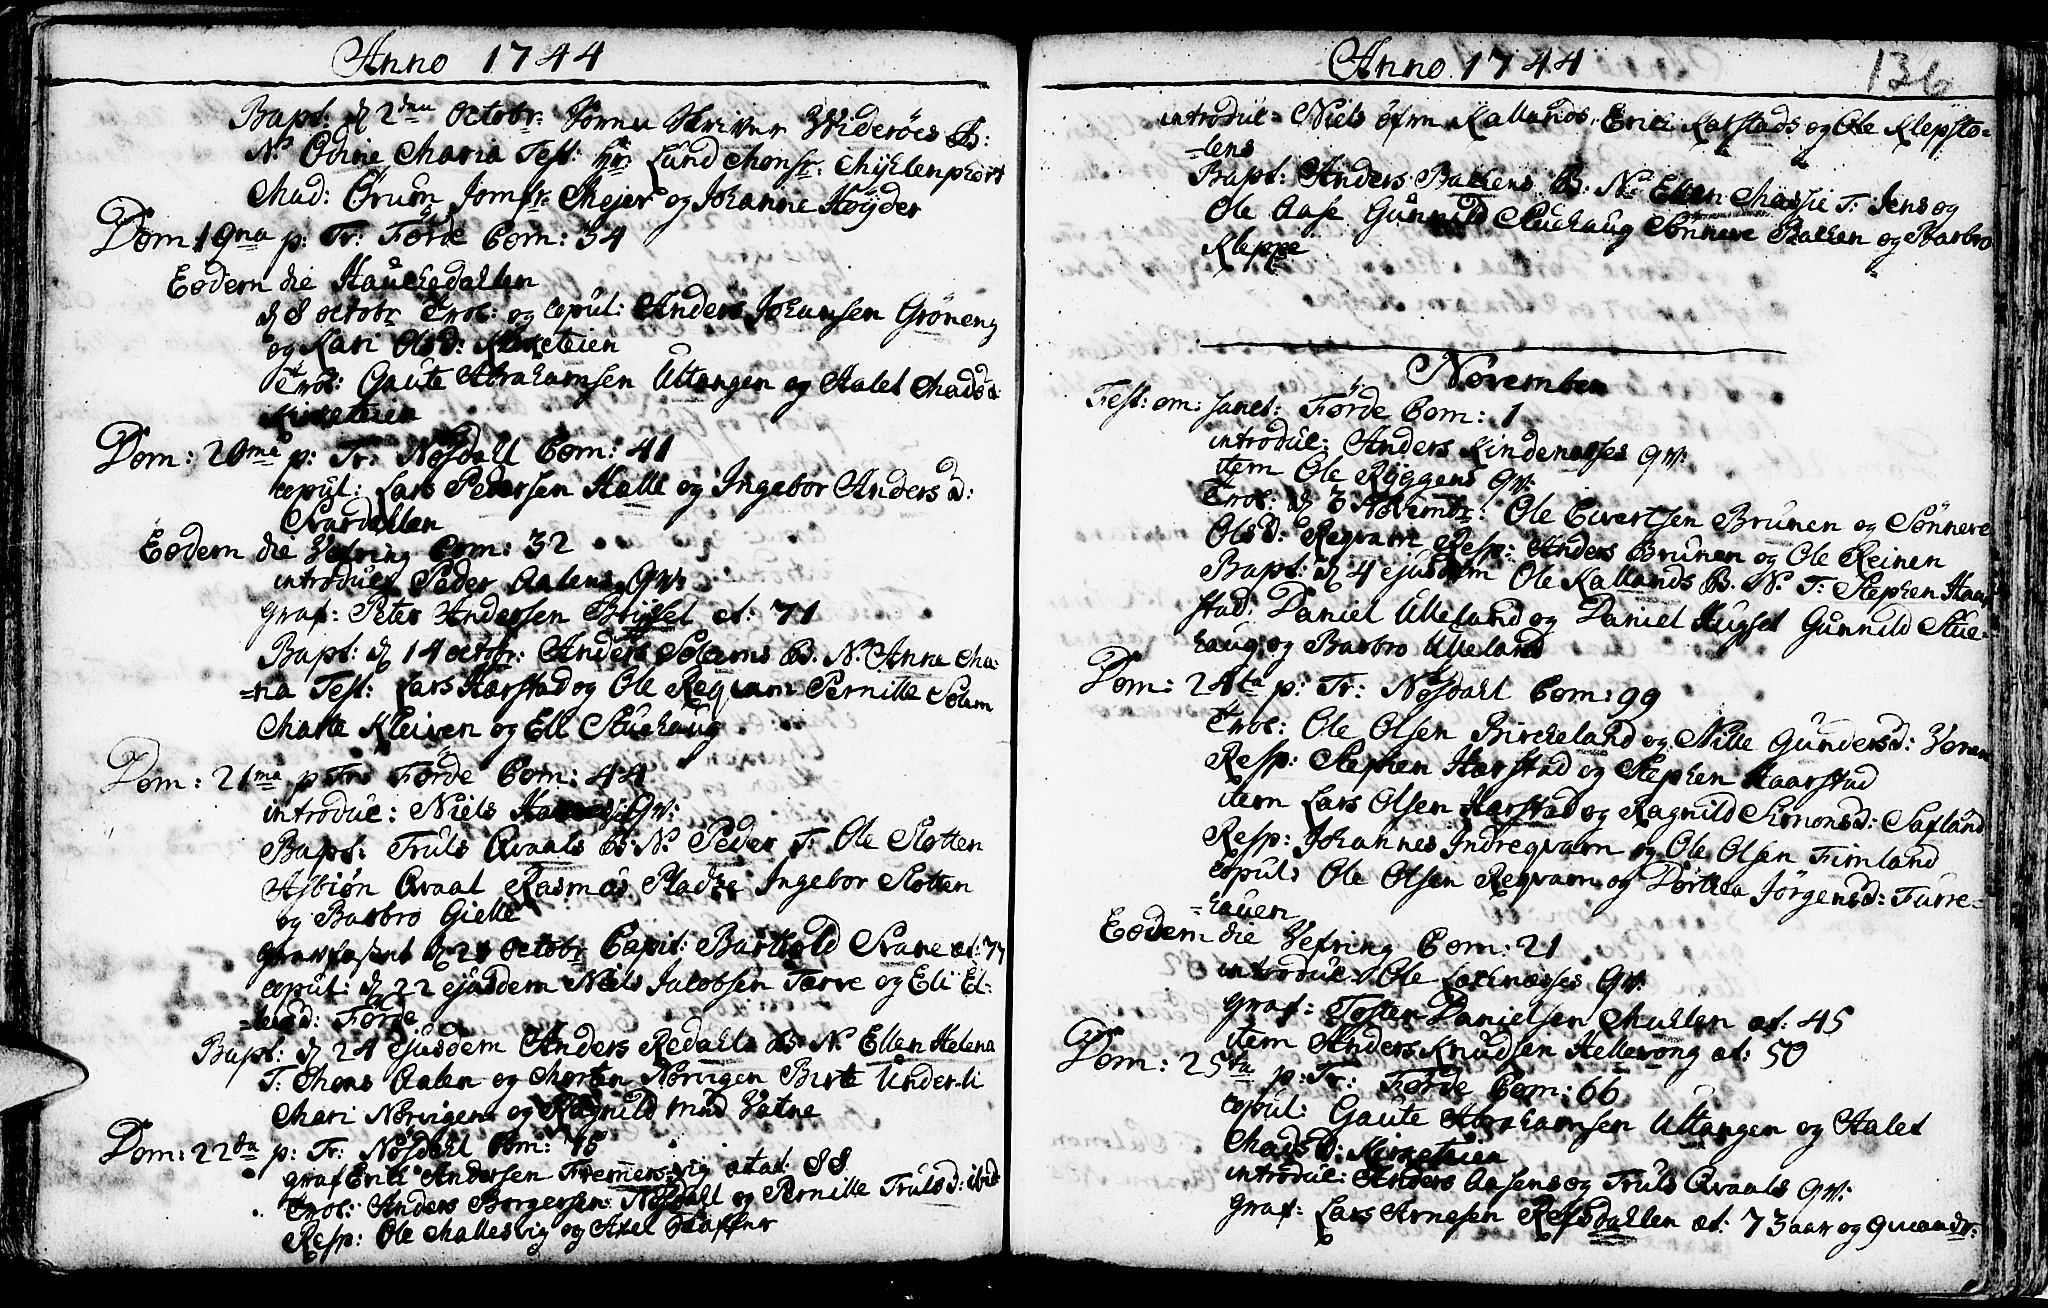 Anno 1744
Bapt: d 2den Octobr: Skriver Widerøes B:
N. Odine Maria Test: hr: Lund Monsr:
Mad: Ørum Jomfr. Mejer og Johanne Høyder
Dom: 19na p: Tr: Førde Com: 34
Eodem die Hauchedahlen
d 8 octobr Trol: og copul: Anders Johansen Grøneng
og Kari Olsd: Kirketeien
Trol: Gaute Abrahamsen Uttangen og Malet Madsd:
Kirketeien
Dom: 20ma p: Tr: Nøsdahl Com: 41
copul: Lars Pedersen Halle og Ingebor Andersd:
Svardahlen
Eodem die Vefring Com: 32
introduc: Peder Aalens qv:
graf: Peter Andersen æt: 71
Bapt: d 14 octobr: Anders Solems B. N. Anna Ma-
=ria Test: Lars Harstad og Ole Reqvam Pernille Solem
Marte Kleiven og Eli Stuehaug
Dom: 21ma p Tr: Førde Com: 44
introduc: Niels qv:
Bapt: Truls Qvaals B: N. Peder T: Ole Slotten
Asbiôn Qvaal Rasmus Ingebor Slotten
og Barbro Gielle
graffæstet d 21 Octobr Capit: Barthold Svane æt: 77
copul: d 22 ejusdem Niels Jacobsen Farve og Eli El-
Førde
Bapt: d 24 ejusdem Anders Redahls B N. Ellen Helena
T: Mons Aalen og Morten Norvigen Birte Underli
Mari Norvigen og Ragnild Vatne
Dom: 22da p: Tr: Nøsdahl Com: 75
graf Erik Andersen Fremersvig ætat: 88
Trol: Anders Borgersen Nøsdahl og Pernille Trulsd: ibid
Resp: Ole Mallesvig og Axel
Anno 1744
136
introduc: Niels Kallands, Erik Karstads og Ole Klepsto-
=lens
Bapt: Anders Bakkens B. N. Ellen T: Jens og
Ole Aase Gunnild Stuehaug Sønneve Bakken og Barbro
Kleppe
November
Fest: om: sanct: Førde Com: 1
introduc: Anders Kindenesses qv:
item Ole Ryggens qv:
Trol: d 3 Novembr: Ole Evertsen Brunen og Sønneve
Olsd: Reqvam Resp: Anders Brunen og Ole Reinen
Bapt: d 4 ejusdem Ole Kallands B. N. T: Stephen Haar-
stad, Daniel Ulleland og Daniel Hugset Gunnild Stue-
haug og Barbro Ulleland
Dom: 24ta p: Tr: Nøsdahl Com: 99
Trol: Ole Olsen Birkeland og Nille Gundersd:
Resp: Stephen Harstad og Stephen Haarstad
item Lars Olsen Harstad og Ragnild Simonsd: Sæfland
Resp: Johannes Indreqvam og Ole Olsen Fimland
copul: Ole Olsen Reqvam og Dorthea Jörgensd: Furre-
=hauen
Eodem die Vefring Com: 21
introduc: Ole qv:
graf: Tosten Danielsen Mahlen æt: 45
item Anders Knudsen Hellevong æt: 50
Dom: 25ta p: Tr: Førde Com: 66
copul: Gaute Abrahamsen Uttangen og Malet
Madsd: Kirketeien
introduc: Anders Aasens og Truls Qvaals qv:
graf: Lars Arnesen Refsdahlen æt: 73 aar og